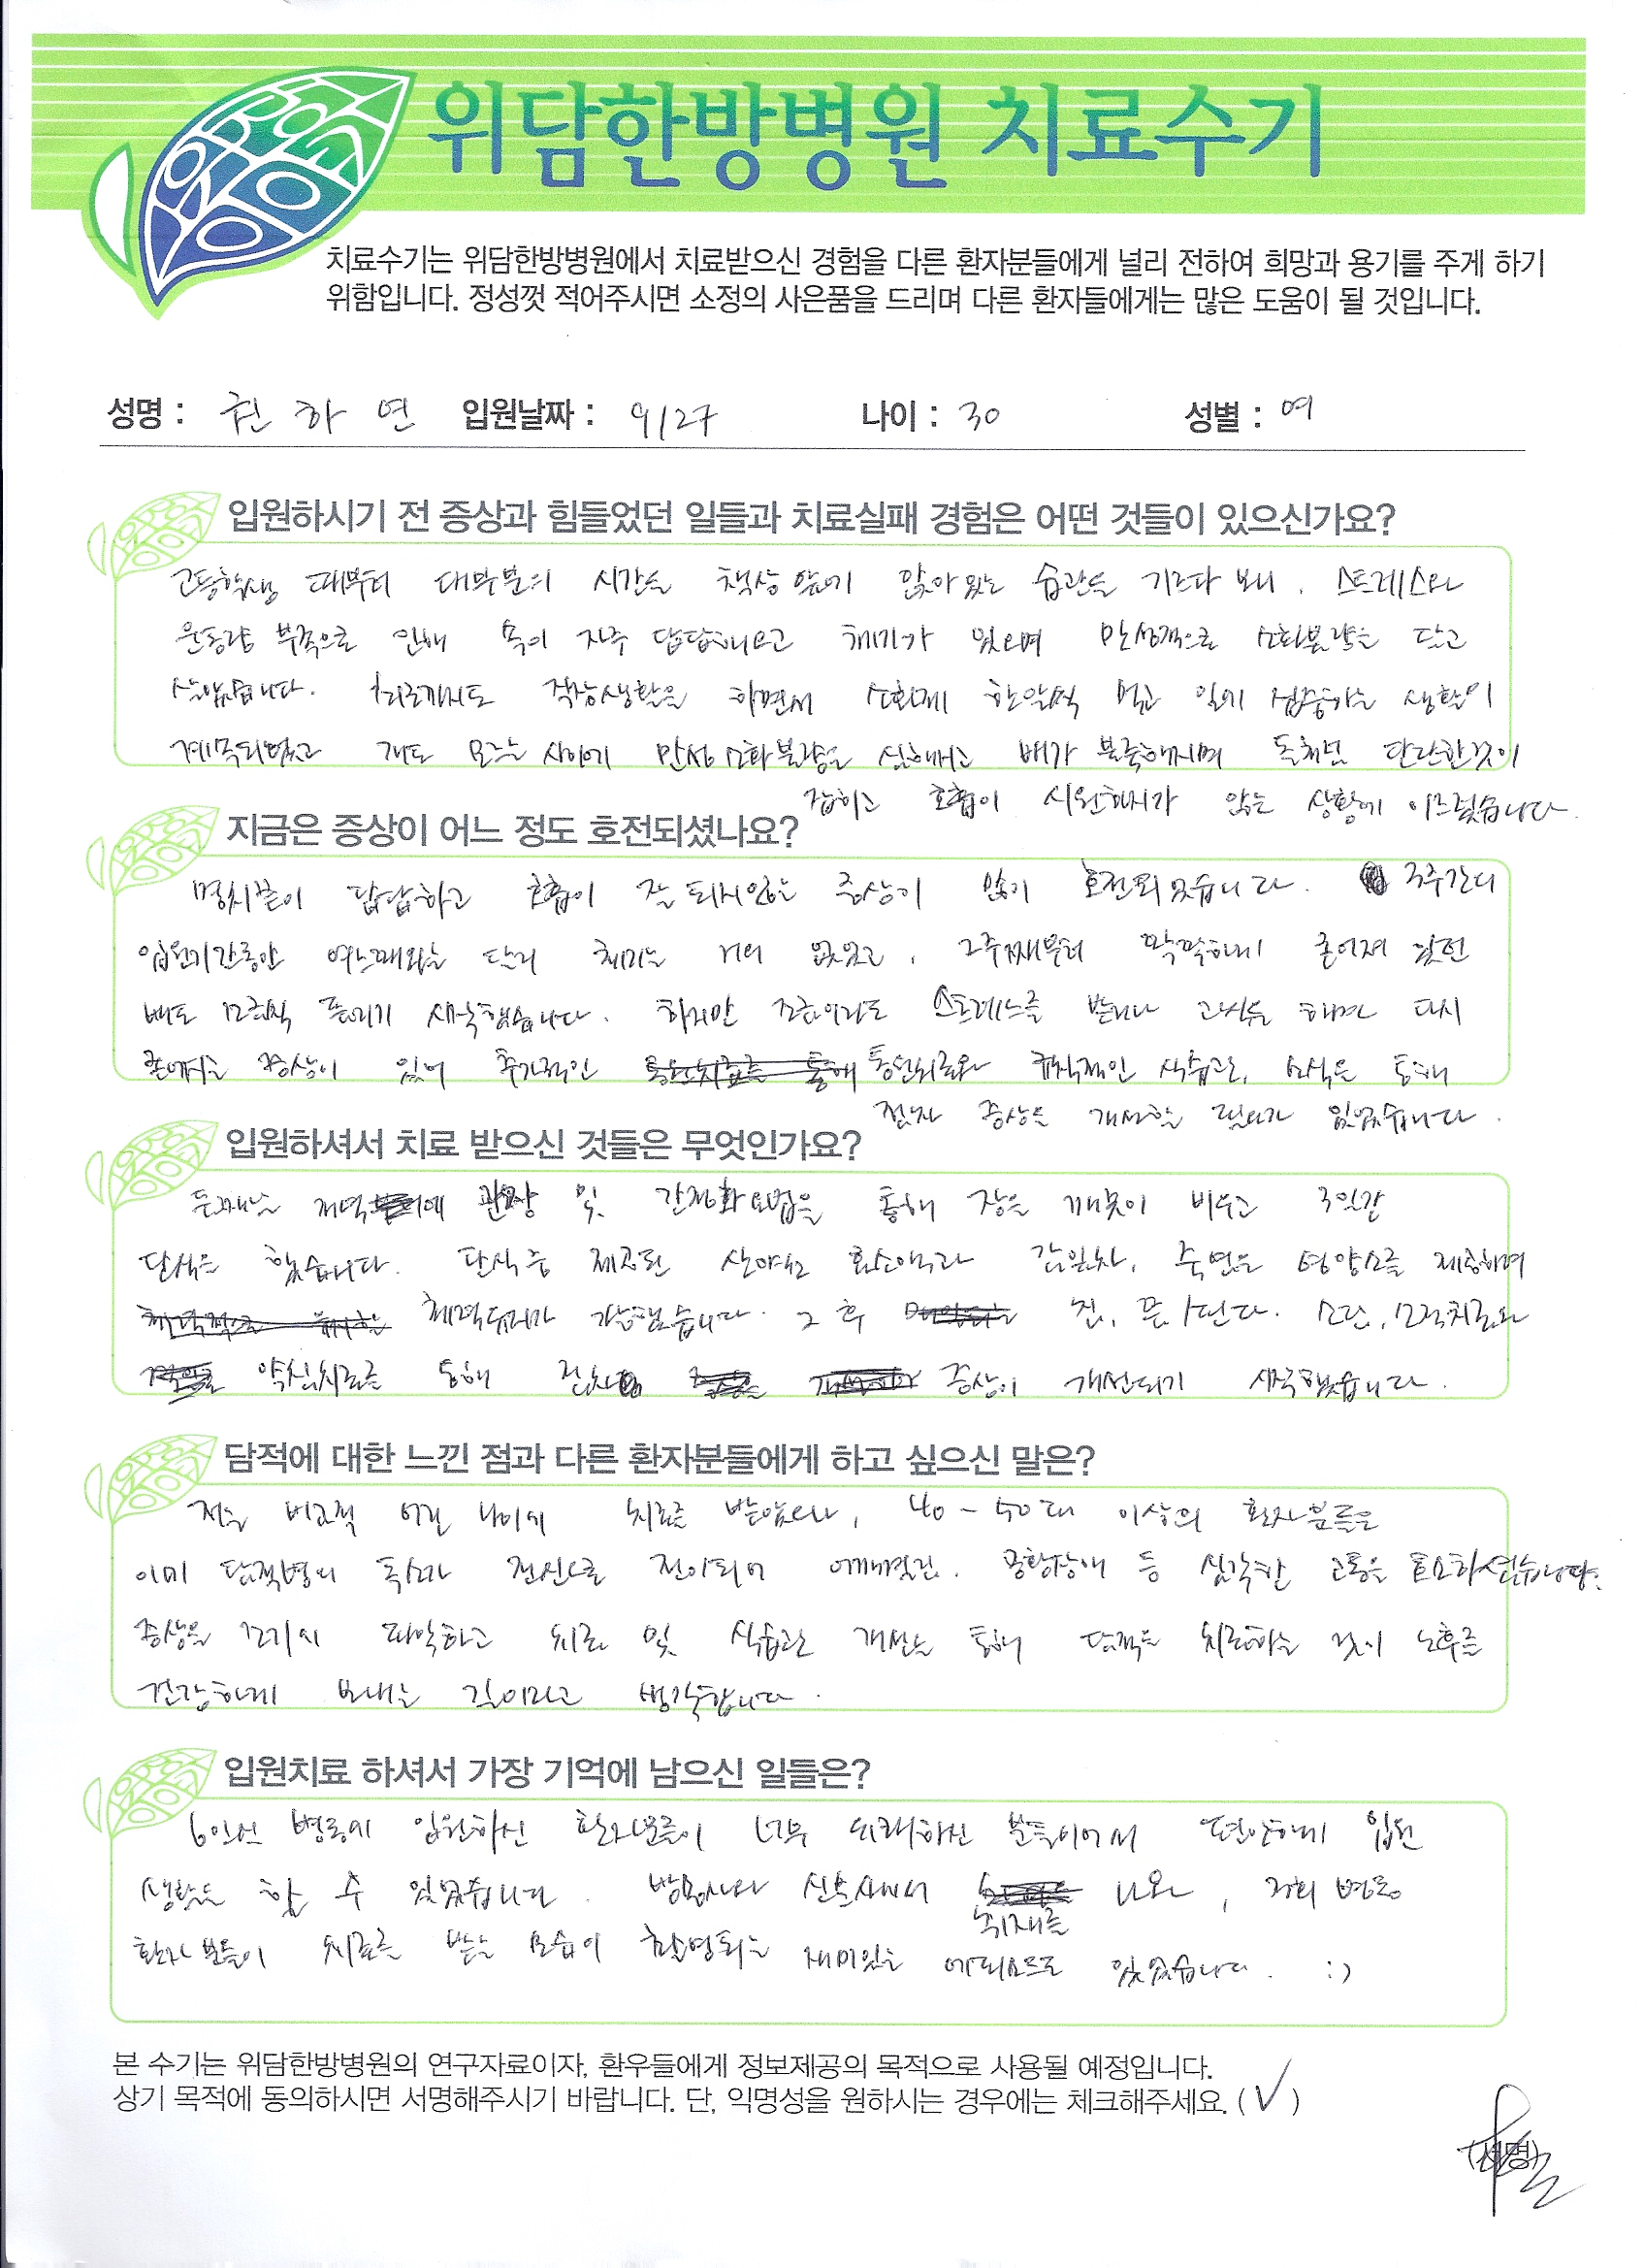 위담한방병원 치료수기
치료수기는 위담한방병원에서 치료받으신 경험을 다른 환자분들에게 널리 전하여 희망과 용기를 주게 하기
위함입니다. 정성껏 적어주시면 소정의 사은품을 드리며 다른 환자들에게는 많은 도움이 될 것입니다.
성명 : 권하연 입원날짜 : 9/27 나이 : 30 성별 : 여
입원하시기 전 증상과 힘들었던 일들과 치료실패 경험은 어떤 것들이 있으신가요?
고등학생 때부터 대부분의 시간을 책상 앞에 앉아있는 습관을 기르다 보니, 스트레스와
운동량 부족으로 인해 속이 자주 답답해오고 체기가 있으며 만성적으로 소화불량을 달고
살았습니다. 최근까지도 직장생활을 하면서 소화제 한알씩 먹고 일에 집중하는 생활이
계속되었고 저도 모르는 사이에 만성 소화불량은 심해지고 배가 불룩해지며 돌처럼 단단한것이
잡히고 호흡이 시원하지가 않는 상황에 이르렀습니다.
지금은 증상이 어느 정도 호전되셨나요?
명치끝이 답답하고 호흡이 잘 되지않는 증상이 많이 호전되었습니다. 3주간의
입원기간동안 여느때와는 달리 체기는 거의 없었고, 2주째부터 딱딱하게 굳어져 있던
배도 조금씩 풀리기 시작했습니다. 하지만 조금이라도 스트레스를 받거나 과식을 하면 다시
굳어지는 증상이 있어 추가적인 통원치료와 규칙적인 식습관, 소식을 통해
점차 증상을 개선할 필요가 있었습니다.
입원하셔서 치료 받으신 것들은 무엇인가요?
둘째날 저녁에 관장 및 간정화요법을 통해 장을 깨끗이 비우고 3일간
단식을 했습니다. 단식 중 제공된 산야초 효소액과 감잎차, 죽염은 영양소를 제공하며
체력유지가 가능했습니다. 그 후 침, 뜸, 소적치료와
약침치료를 통해 점차 증상이 개선되기 시작했습니다.
담적에 대한 느낀 점과 다른 환자분들에게 하고 싶으신 말은?
저는 비교적 어린 나이에 치료를 받았으나, 40-50대 이상의 환자분들은
이미 담적병의 독소가 전신으로 전이되어 어깨결림, 공황장애 등 심각한 고통을 호소하셨습니다.
증상을 조기에 파악하고 치료 및 식습관 개선을 통해 담적을 치료하는 것이 노후를
건강하게 보내는 길이라고 생각합니다.
입원치료 하셔서 가장 기억에 남으신 일들은?
6인실 병동에 입원하신 환자분들이 너무 유쾌하신 분들이어서 편안하게 입원
생활을 할 수 있었습니다. 방송사와 신문사에서 취재를 나와, 저희 병동
환자분들이 치료를 받는 모습이 촬영되는 재미있는 에피소드도 있었습니다. :)
본 수기는 위담한방병원의 연구자료이자, 환우들에게 정보제공의 목적으로 사용될 예정입니다.
상기 목적에 동의하시면 서명해주시기 바랍니다. 단, 익명성을 원하시는 경우에는 체크해주세요. (✓)
(서명)